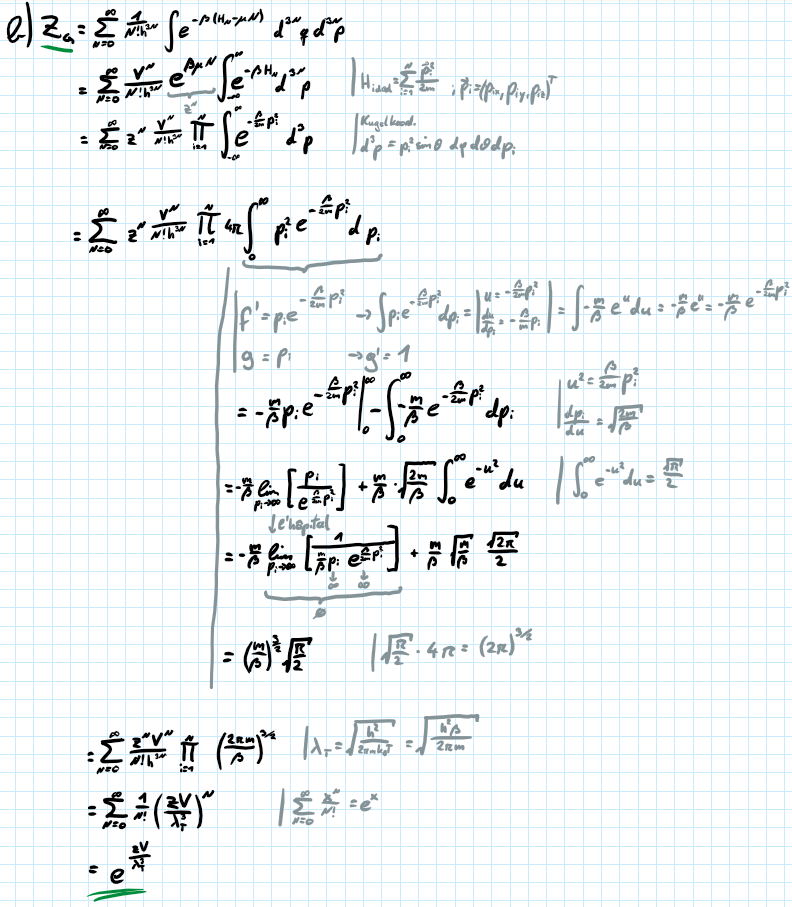 b) Z_G = ∑_{N=0}^{∞} 1/(N!h^{3N}) ∫ e^{-β(H_N-μN)} d^{3N}q d^{3N}p
= ∑_{N=0}^{∞} V^N/(N!h^{3N}) e^{βμN} ∫_{-∞}^{∞} e^{-βH_N} d^{3N}p | H_ideal = ∑_{i=1}^{N} p⃗_i²/2m ; p⃗_i = (p_{ix}, p_{iy}, p_{iz})^T
z^N
= ∑_{N=0}^{∞} z^N V^N/(N!h^{3N}) ∏_{i=1}^{N} ∫_{-∞}^{∞} e^{-β/2m p_i²} d³p | Kugelkoord. d³p = p_i² sinθ dφ dθ dp_i
= ∑_{N=0}^{∞} z^N V^N/(N!h^{3N}) ∏_{i=1}^{N} 4π ∫_0^∞ p_i² e^{-β/2m p_i²} d p_i
| f' = p_i e^{-β/2m p_i²} → ∫ p_i e^{-β/2m p_i²} dp_i = | u = -β/2m p_i² du/dp_i = -β/m p_i | = ∫ -m/β e^u du = -m/β e^u = -m/β e^{-β/2m p_i²}
| g = p_i → g' = 1
= -m/β p_i e^{-β/2m p_i²} |_0^∞ - ∫_0^∞ -m/β e^{-β/2m p_i²} dp_i | u² = β/2m p_i² dp_i/du = √(2m/β)
= -m/β lim_{p_i→∞} [p_i / e^{β/2m p_i²}] + m/β · √(2m/β) ∫_0^∞ e^{-u²} du | ∫_0^∞ e^{-u²} du = √π/2
↓ l'hopital
= -m/β lim_{p_i→∞} [1 / (β/m p_i e^{β/2m p_i²})] + m/β √(m/β) √(2π)/2
↓ ↓
∞ ∞
0
= (m/β)^{3/2} √(π/2) | √(π/2) · 4π = (2π)^{3/2}
= ∑_{N=0}^{∞} z^N V^N/(N!h^{3N}) ∏_{i=1}^{N} (2πm/β)^{3/2} | λ_T = √(h²/(2πmk_BT)) = √(h²β/(2πm))
= ∑_{N=0}^{∞} 1/N! (zV/λ_T³)^N | ∑_{N=0}^{∞} x^N/N! = e^x
= e^{zV/λ_T³}